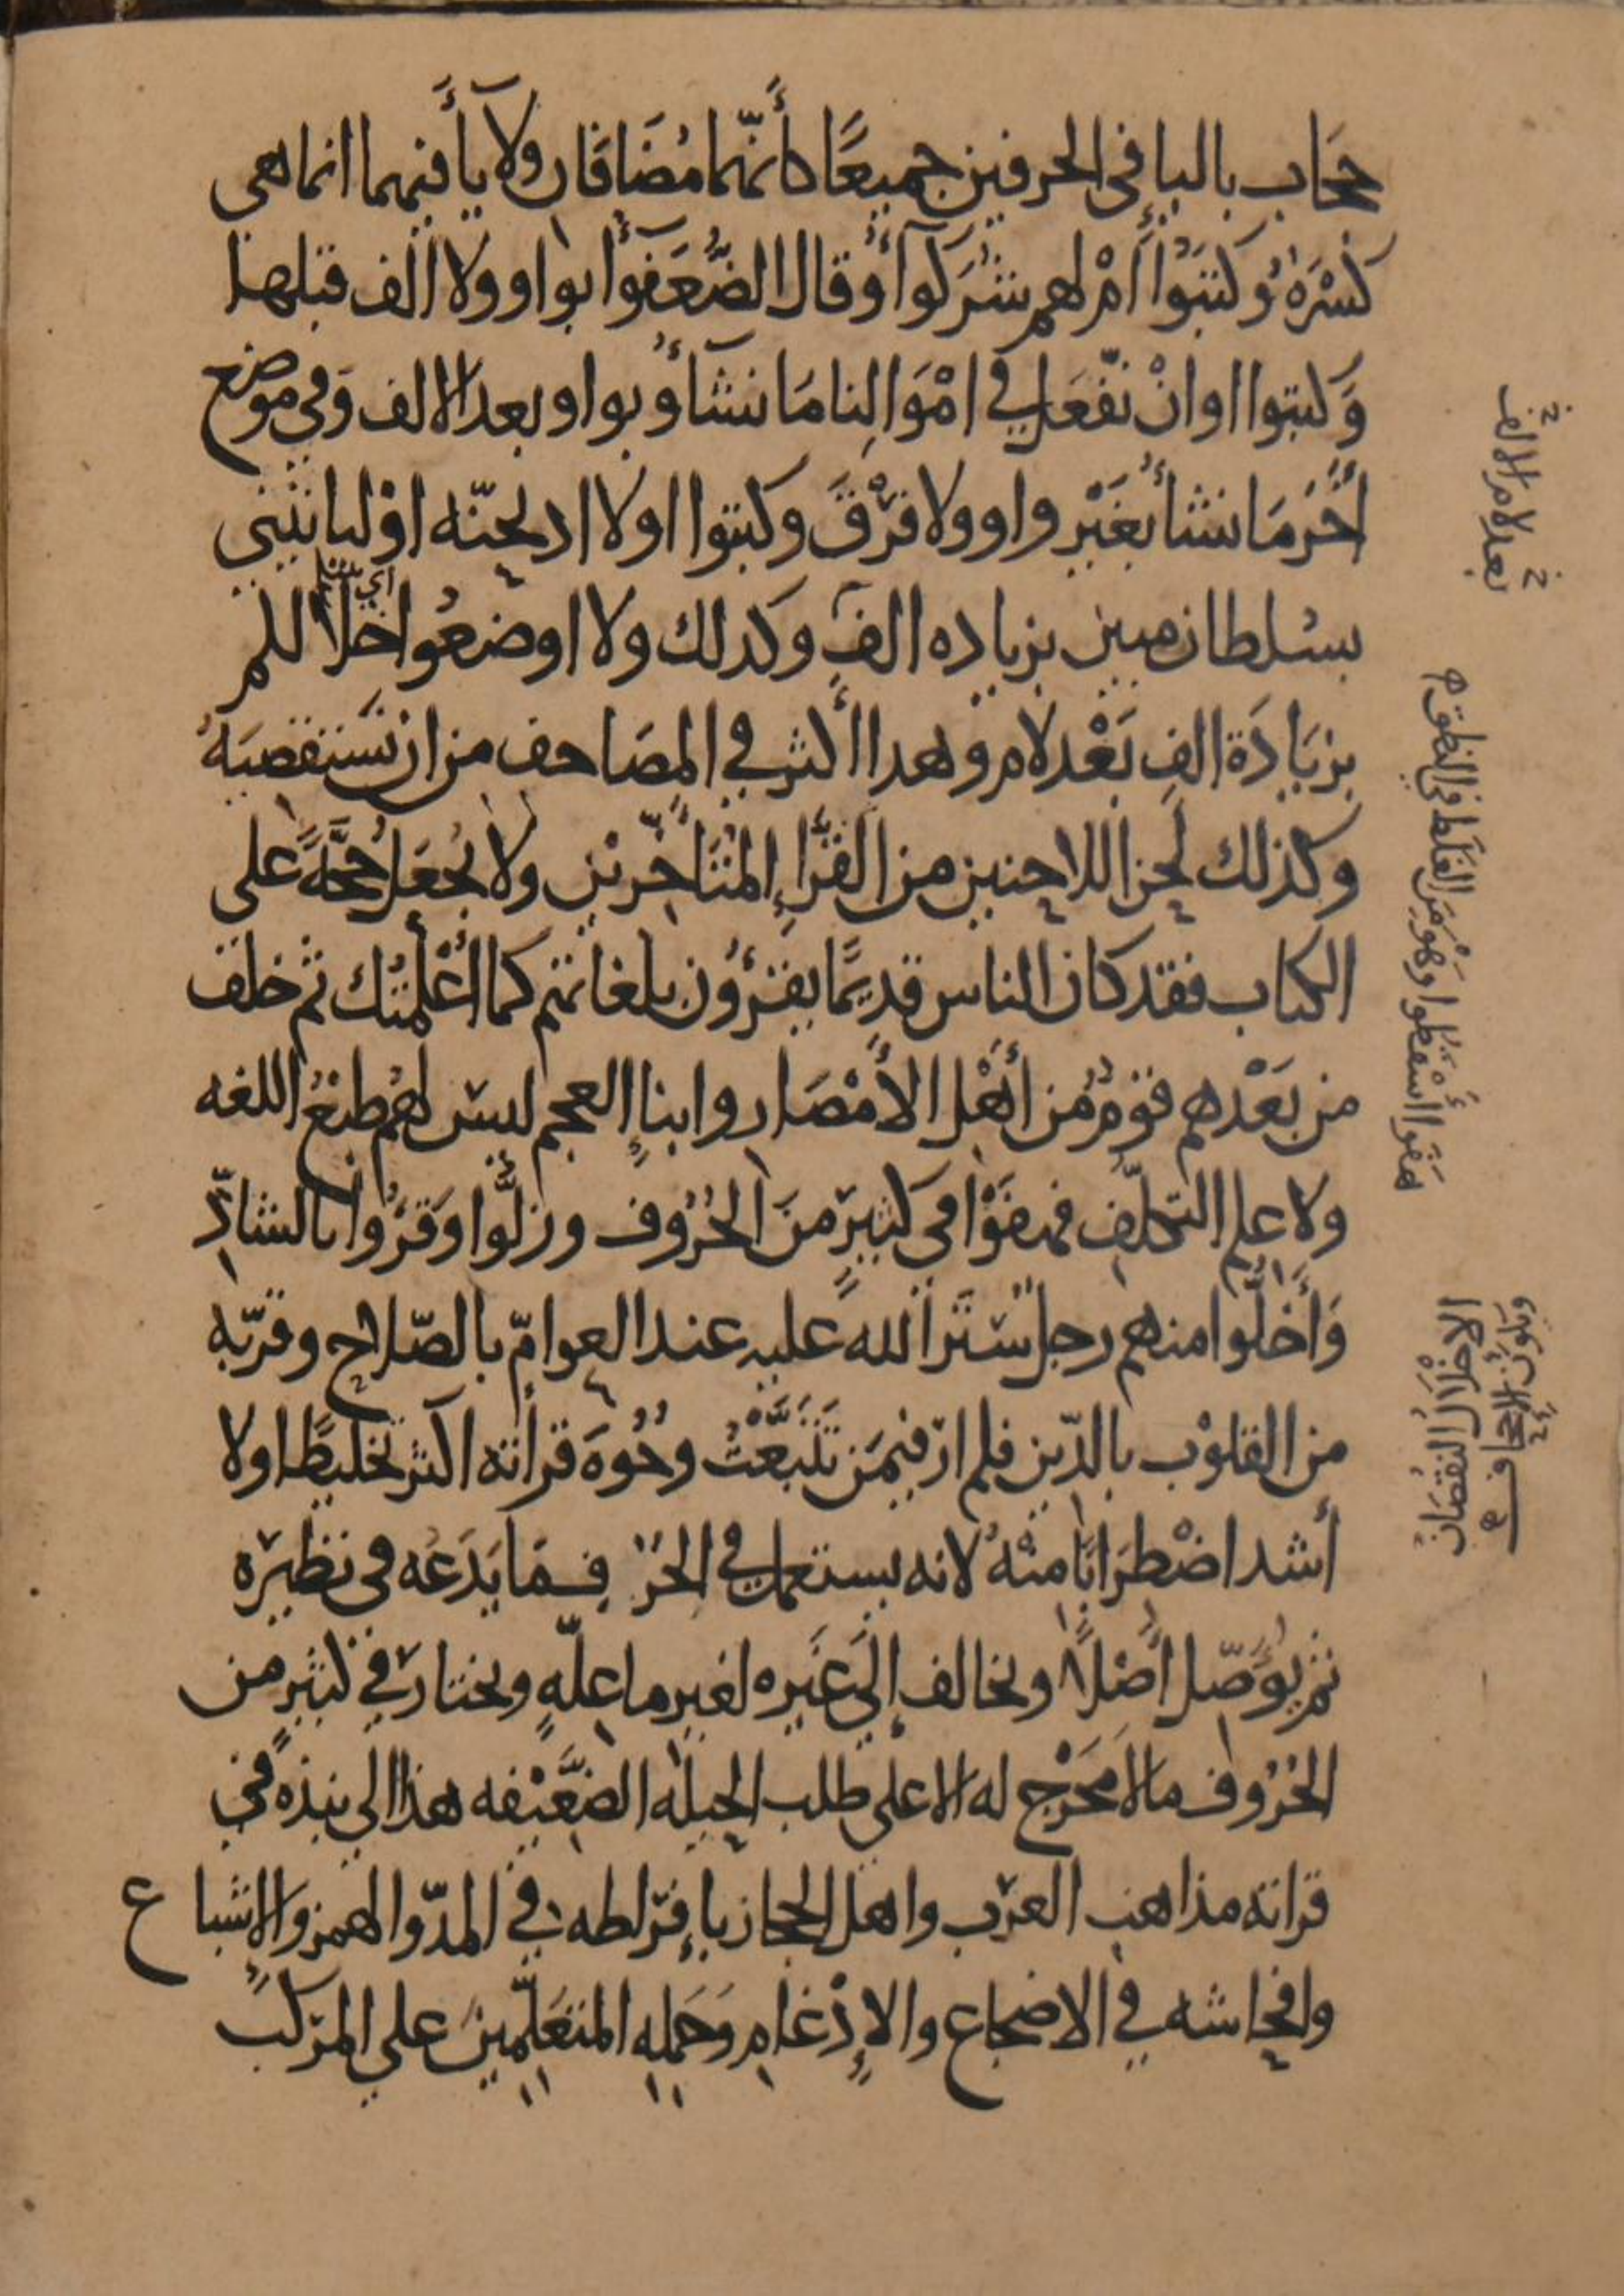 حجاب بالياء في الحرفين جميعًا كأنّهما مُضَافان ولا يأ فيهما انما هي
كَسْرَة وكتبُوا أَمْ لهم شُرَكَوآ أو قال الضُّعَفَوآ بواو ولا الف قبلها
وكتبوا او انْ نّفْعَل في امْوَالِنا مَا نشَآؤُ بواو بعد الالف وفي موضع
أخَرَ مَا نشأ بغَيْر واو ولا فَرْق وكتبوا اولا اذبحنّه اوْ ليا تيني
بسُلطان مبين بزياده الفٍ وكدلك ولا اوضعُوا خلالكم
بزيَادَة الفٍ بَعْد لام وهدا اكثر في المصَاحف من ان نَستقصيَهُ
وكذلك لحن اللاحنين من القُرَّاءِ المُتَأخِّرين ولا يُجعَل حُجَّةً على
الكتاب فقد كان الناس قديمًا يقرؤُن بلغاتهم كما أعْلمتُك ثم خلف
من بَعْدهم قوْمٌ من أَهْل الأَمْصَار وابناءِ العجم ليسَ لهُم طبْعُ اللغه
ولا علم التكلّف فهفَوْا في كثير منَ الحُرُوف وزلُّوا وَقَرَؤُا بالشاذّ
وَأَخَلُّوا منهم رجل سَتَرَ الله عليه عند العوامّ بالصّلاح وقرّبه
من القلوْب بالدّين فلم ارَ فيمَن تَتَبَّعْتُ وجُوهَ قرأته اكثر تخليطًا ولا
أشد اضْطِرَابًا منْهُ لانه يستعمل في الحَرْ فِ مَا يَدَعُه في نظيرَه
ثم يؤَصّل أَصْلًا ويخالف إلَى غَيره لغير ما علّهٍ ويختار في كثير من
الحُرُوف ما لا مَخْرَج له الا على طلب الحيله الضعَّيْفه هذا الي نبذه في
قراته مذاهب العرَب واهل الحجاز باءِفرَاطه في المدّ والهمز والاشباع
وافحاشه في الاضجاع والإدْغام وَحَملِه المتعَلّمينَ على المركَب
بعد لام الالف
هَفَوا اسْقَطُوا وهُوَ مَنَ الغَلَط في النطق
الاخْلَالُ النقصَانُ
ويكون الاجحاف